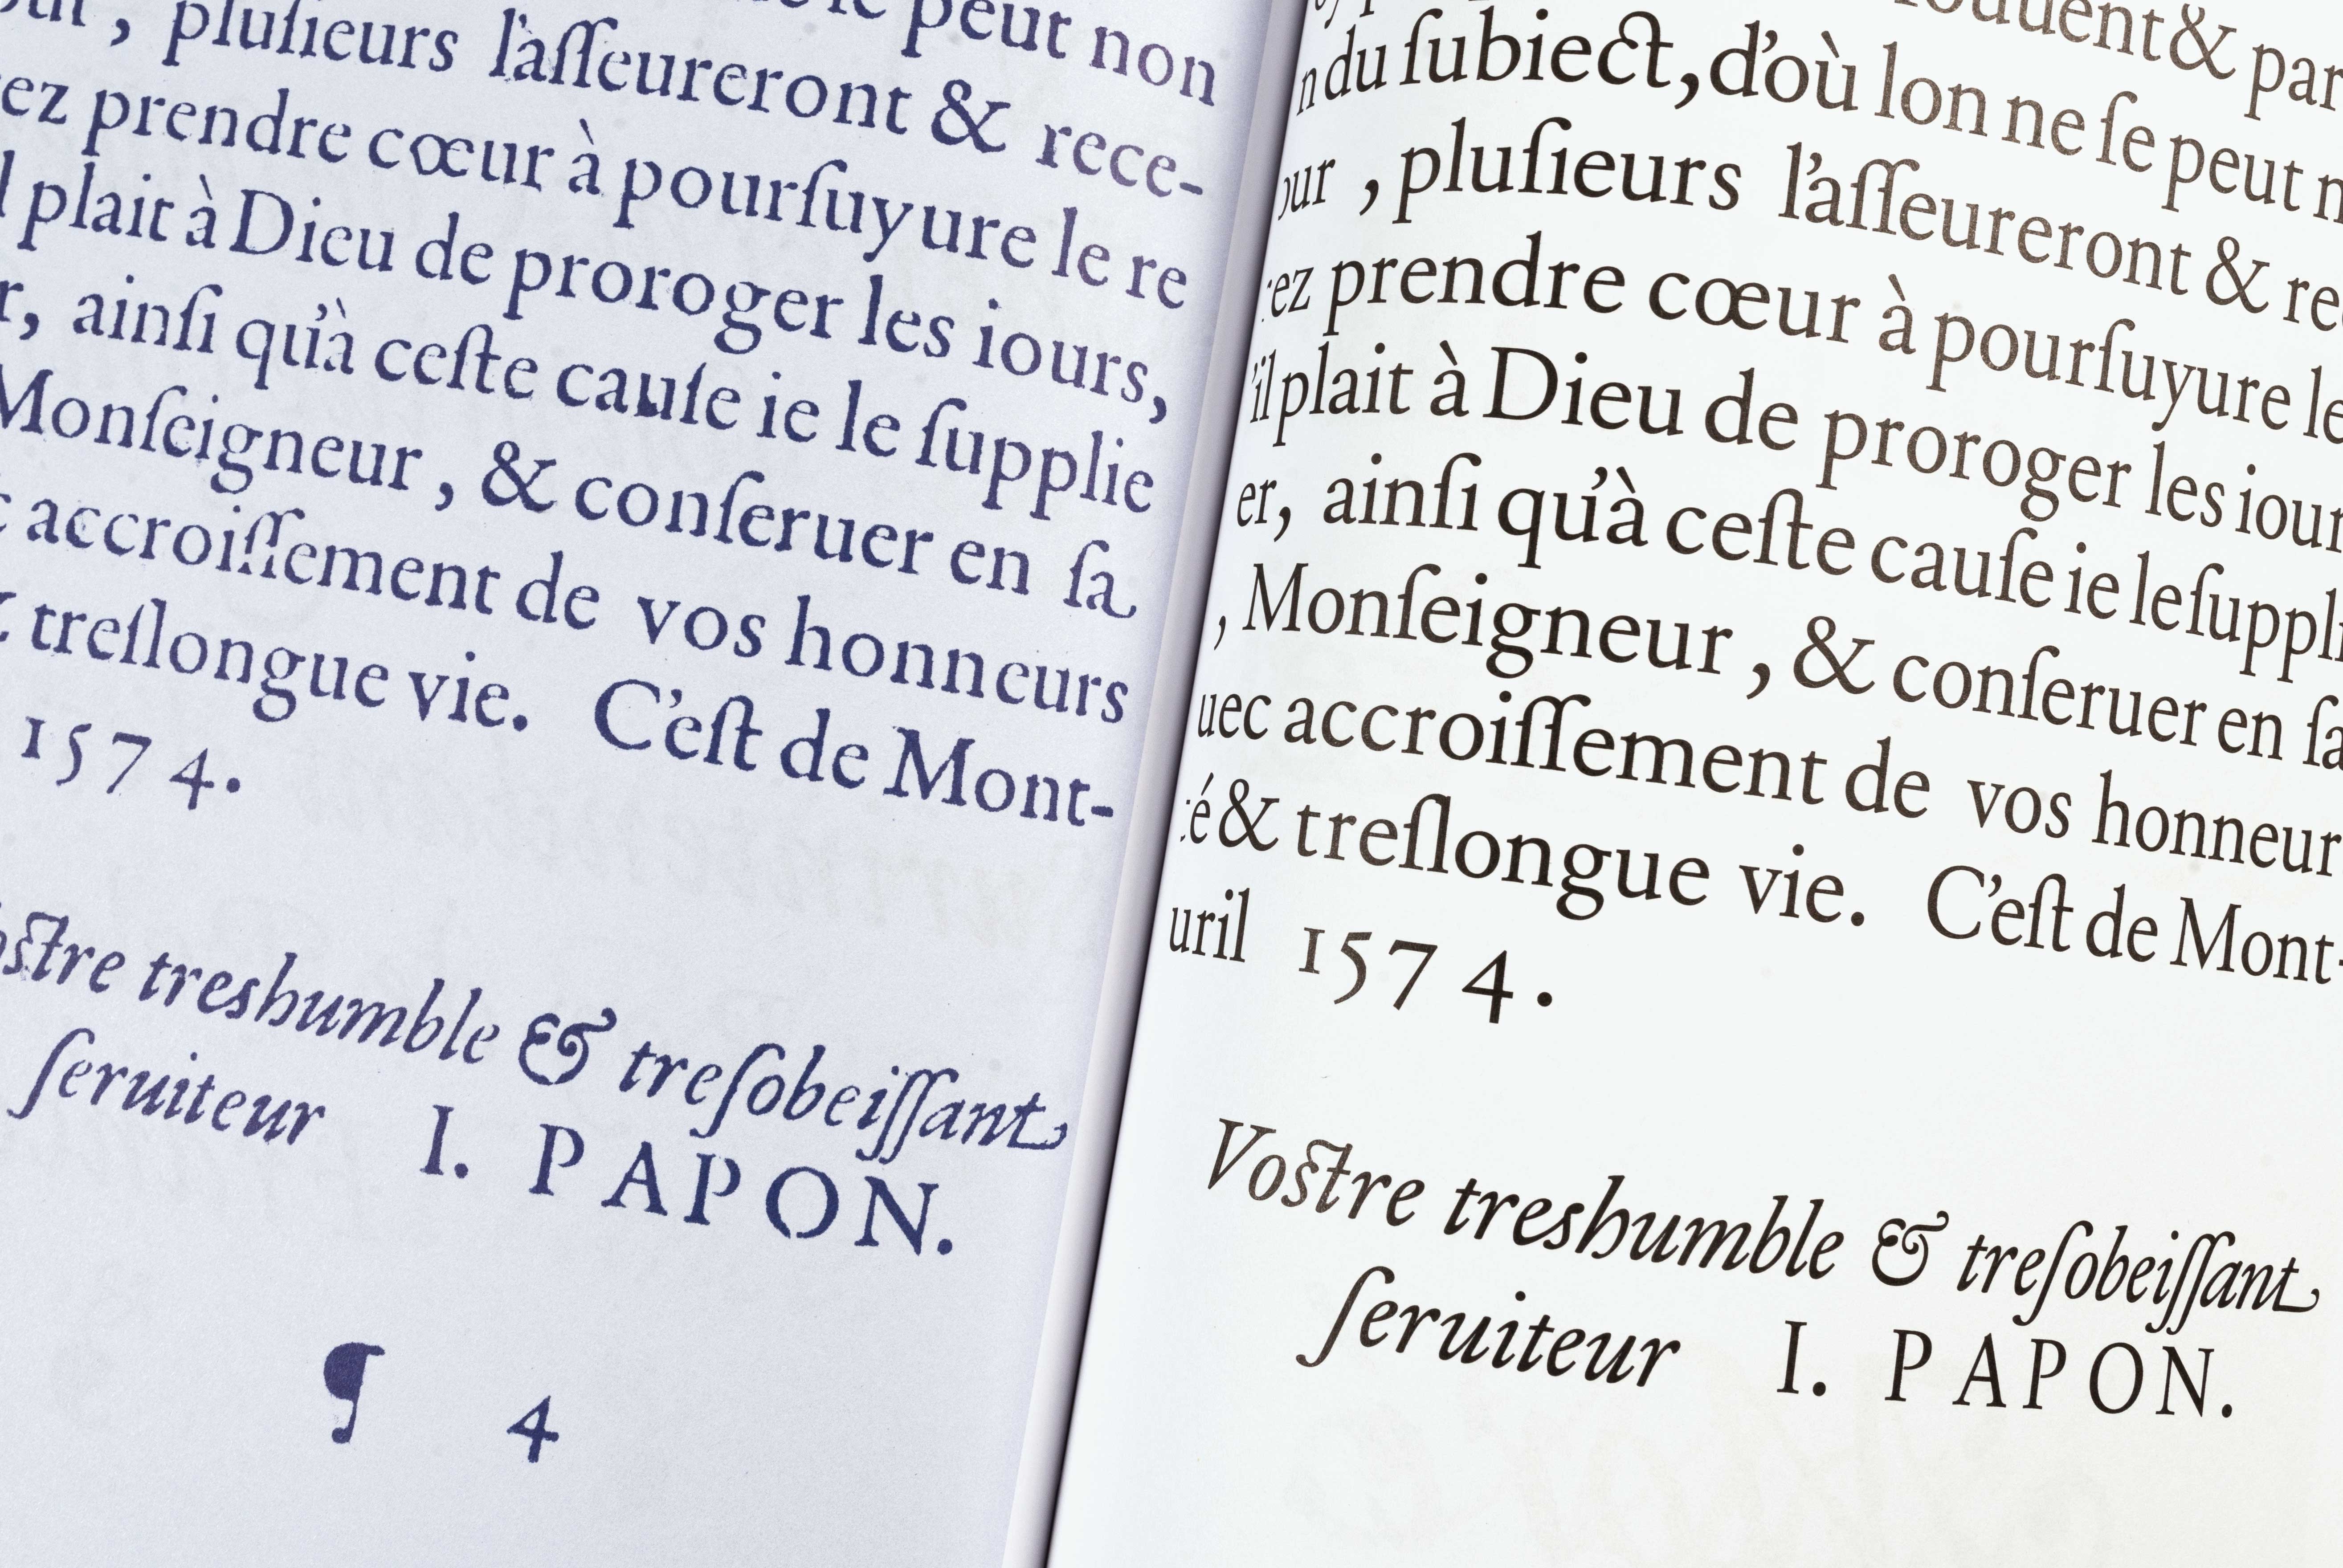 peut non
, pluſieurs l'aſſeureront & rece-
ez prendre cœur à pourſuyure le re
plait à Dieu de proroger les iours,
r, ainſi qu'à ceſte cauſe ie le ſupplie
Monſeigneur, & conſeruer en ſa
accroiſſement de vos honneurs
& treſlongue vie. C'eſt de Mont-
1574.
oſtre treshumble & treſobeiſſant
ſeruiteur I. PAPON.
¶ 4
ouuent & par
n du ſubiect, d'où lon ne ſe peut n
our , pluſieurs l'aſſeureront & rec
rez prendre cœur à pourſuyure le
'il plait à Dieu de proroger les iour
er, ainſi qu'à ceſte cauſe ie le ſuppli
, Monſeigneur, & conſeruer en ſa
uec accroiſſement de vos honneur
té & treſlongue vie. C'eſt de Mont-
uril 1574.
Voſtre treshumble & treſobeiſſant
ſeruiteur I. PAPON.